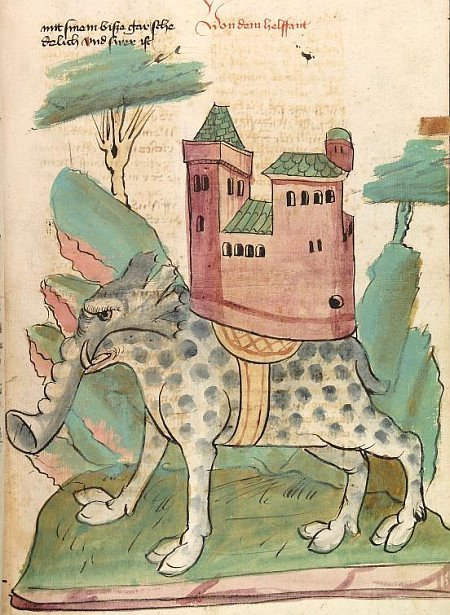 mitt sinem biße gar sche
delich vnd swer ist
Von dem helffant